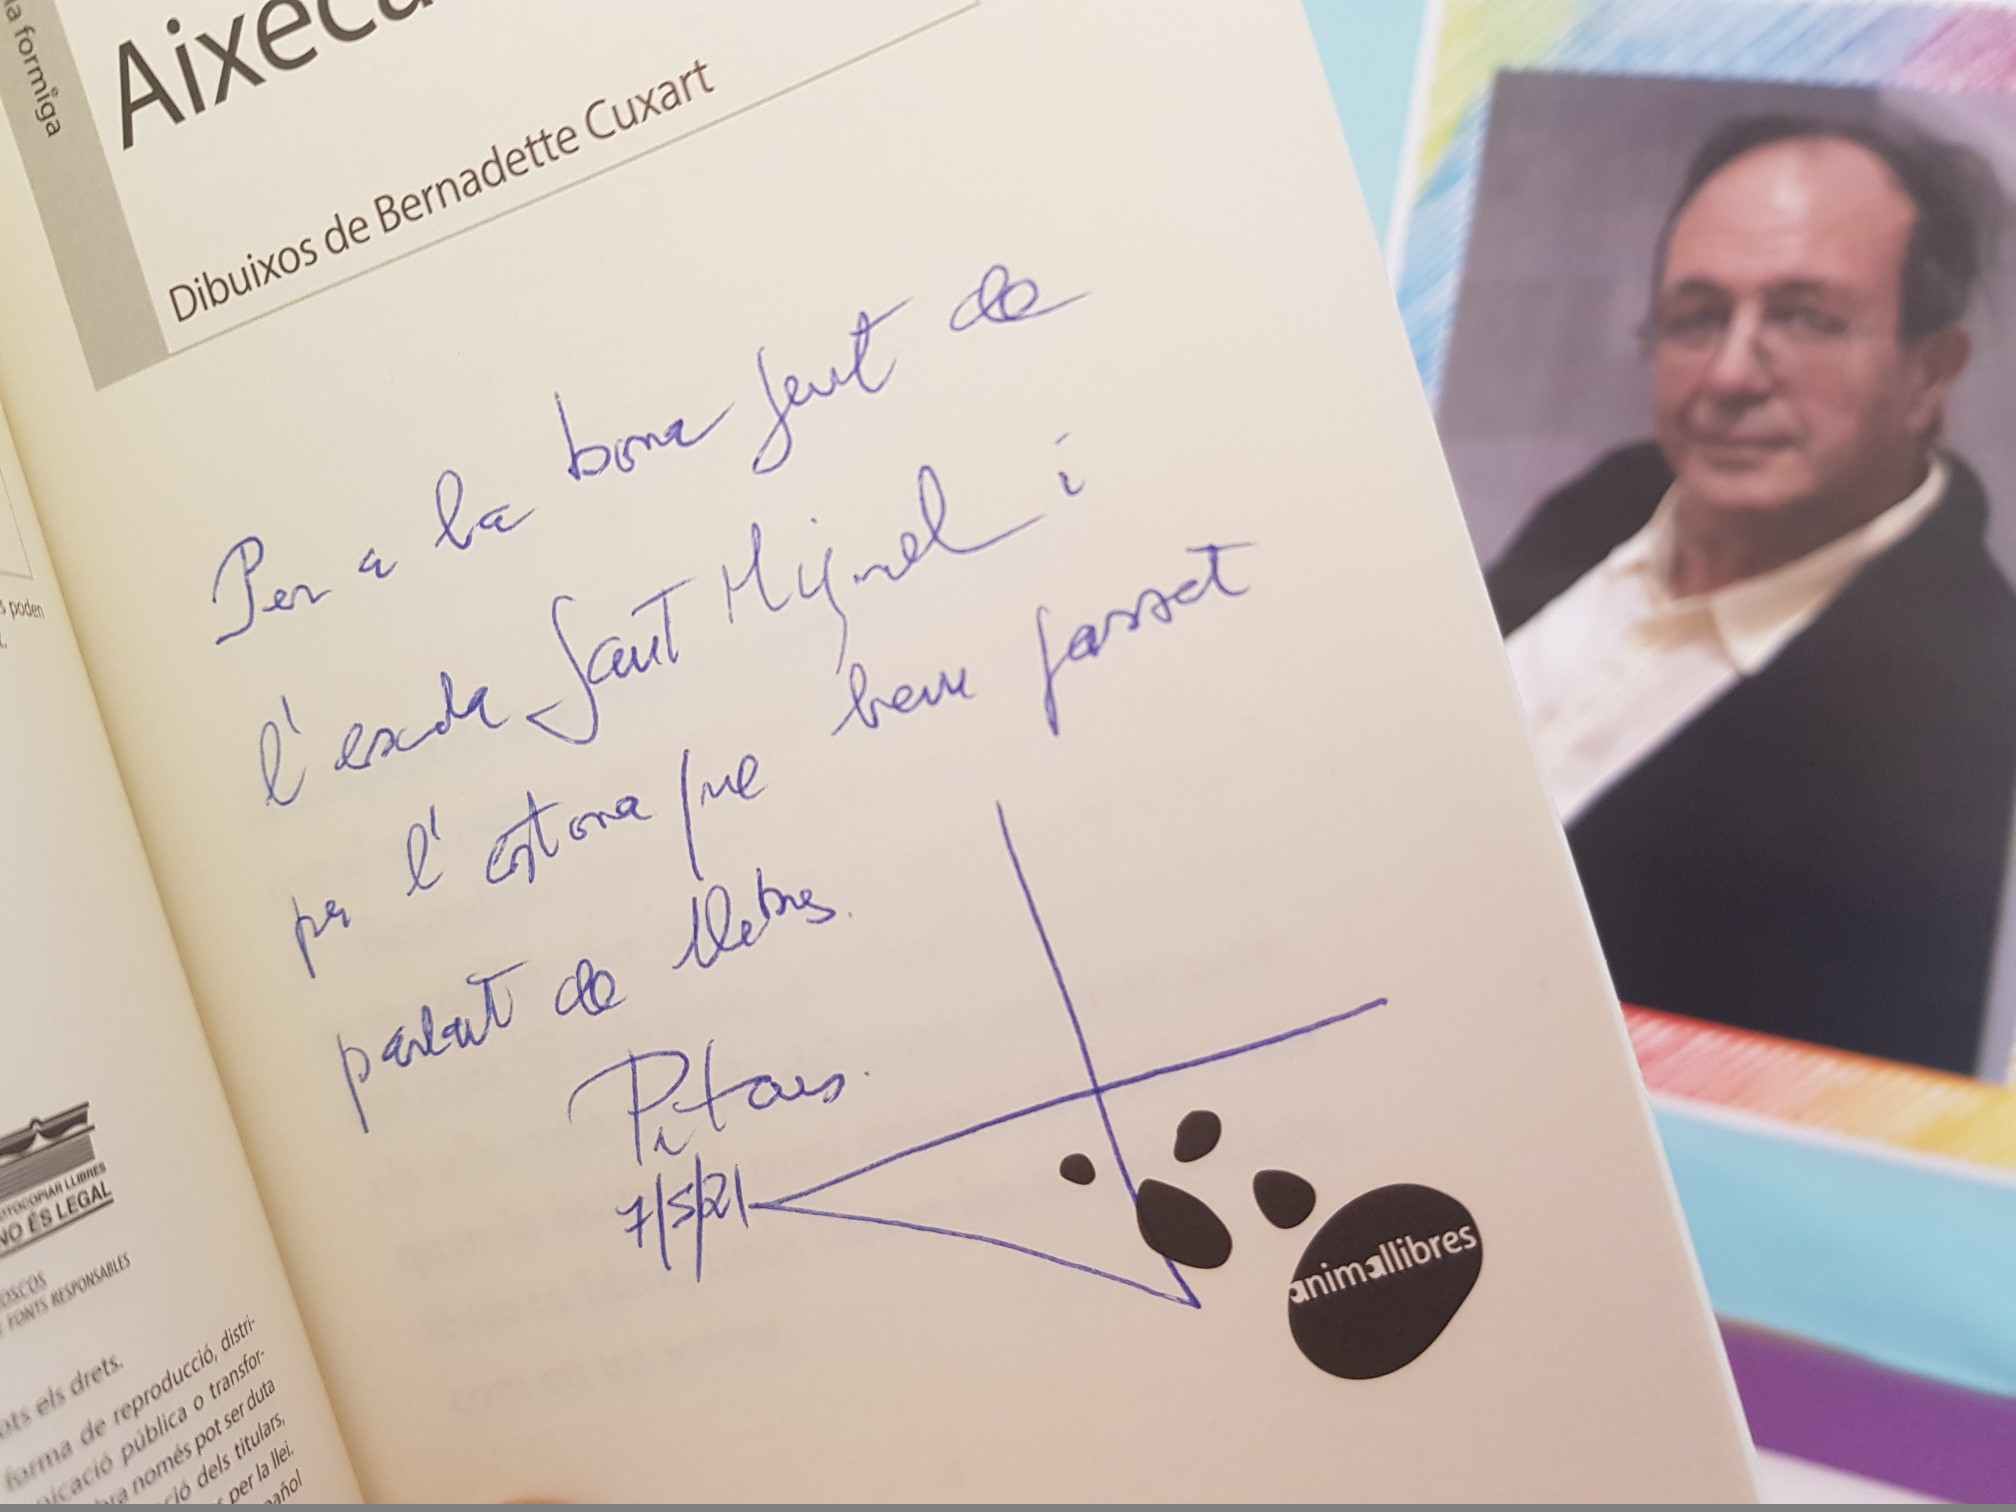 la formiga
Aixeca
Dibuixos de Bernadette Cuxart
Per a la bona gent de
l'escola Sant Miquel i
per l'estona que hem passat
parlant de llibres.
Pitous.
7/5/21
animallibres
s poden
OTOCOPIAR LLIBRES
NO ÉS LEGAL
OSCOS
FONTS RESPONSABLES
ots els drets.
forma de reproducció, distri-
nicació pública o transfor-
bra només pot ser duta
ció dels titulars,
per la llei.
pañol